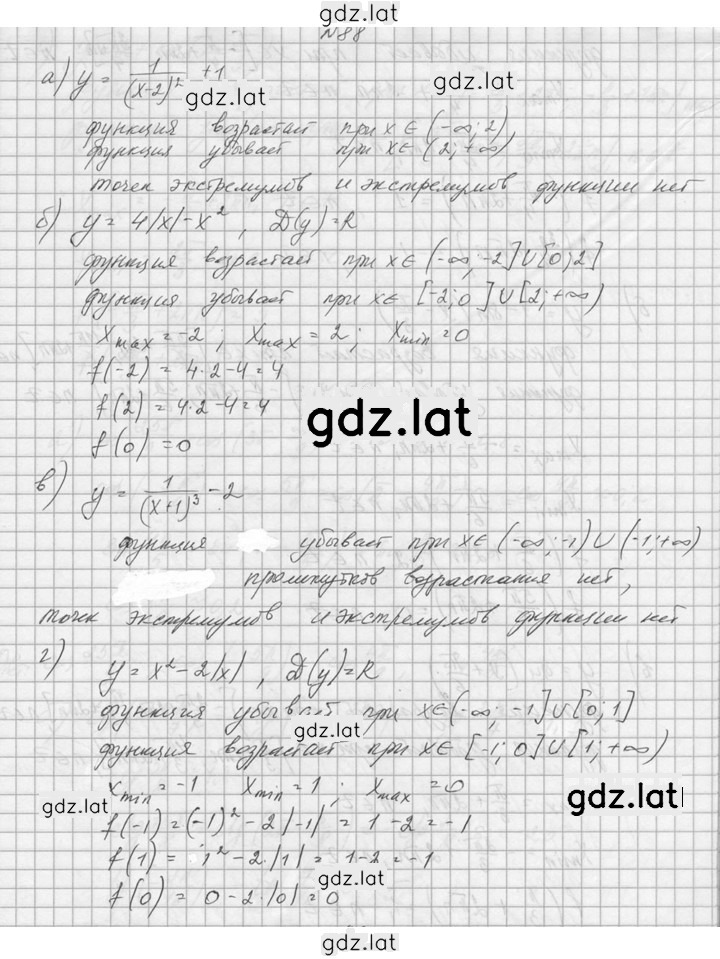 gdz.lat
N88
а) y = 1/(x-2)² + 1
gdz.lat
gdz.lat
функция возрастает при x ∈ (-∞; 2)
функция убывает при x ∈ (2; +∞)
точек экстремумов и экстремумов функции нет
б) y = 4|x| - x², D(y) = R
функция возрастает при x ∈ (-∞; -2] ∪ [0; 2]
функция убывает при x ∈ [-2; 0] ∪ [2; +∞)
x max = -2; x max = 2; x min = 0
f(-2) = 4·2-4=4
f(2) = 4·2-4=4
gdz.lat
f(0) = 0
в) y = 1/(x+1)³ - 2
функция убывает при x ∈ (-∞; -1) ∪ (-1; +∞)
промежутков возрастания нет,
точек экстремумов и экстремумов функции нет
г) y = x² - 2|x|, D(y) = R
функция убывает при x ∈ (-∞; -1] ∪ [0; 1]
gdz.lat
функция возрастает при x ∈ [-1; 0] ∪ [1; +∞)
x min = -1 x min = 1; x max = 0
gdz.lat
gdz.lat
f(-1) = (-1)² - 2|-1| = 1 - 2 = -1
f(1) = 1² - 2·|1| = 1-2 = -1
gdz.lat
f(0) = 0 - 2·|0| = 0
gdz.lat